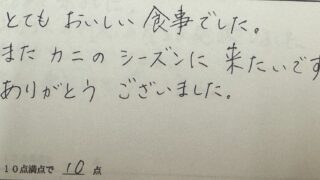 とても おいしい 食事でした。
また カニの シーズンに 来たいです
ありがとう ございました。
10点満点で 10 点